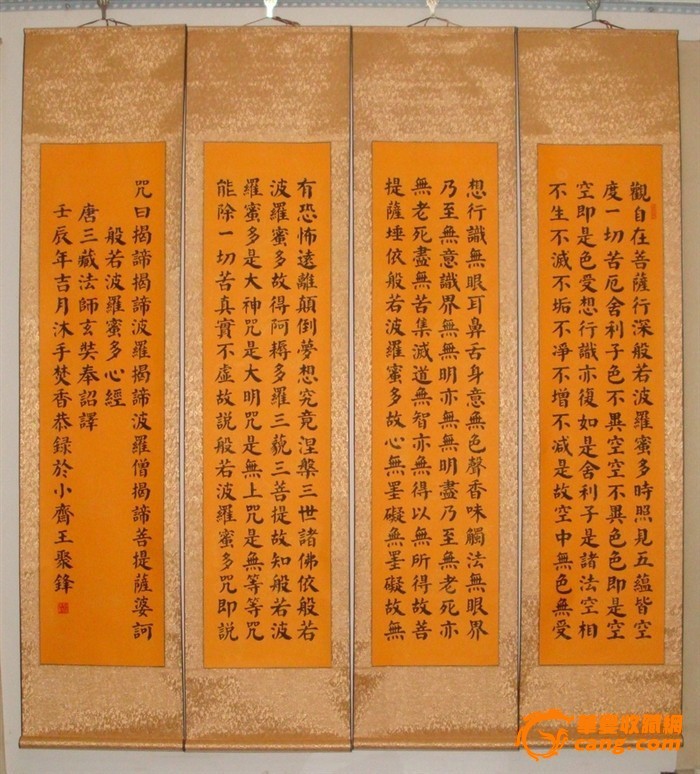 觀自在菩薩行深般若波羅蜜多時照見五蘊皆空
度一切苦厄舍利子色不異空空不異色色即是空
空即是色受想行識亦復如是舍利子是諸法空相
不生不滅不垢不淨不增不減是故空中無色無受
想行識無眼耳鼻舌身意無色聲香味觸法無眼界
乃至無意識界無無明亦無無明盡乃至無老死亦
無老死盡無苦集滅道無智亦無得以無所得故菩
提薩埵依般若波羅蜜多故心無墨礙無墨礙故無
有恐怖遠離顛倒夢想究竟涅槃三世諸佛依般若
波羅蜜多故得阿耨多羅三藐三菩提故知般若波
羅蜜多是大神咒是大明咒是無上咒是無等等咒
能除一切苦真實不虛故説般若波羅蜜多咒即説
咒曰揭諦揭諦波羅揭諦波羅僧揭諦菩提薩婆訶
般若波羅蜜多心經
唐三藏法師玄奘奉詔譯
壬辰年吉月沐手焚香恭録於小齋王聚鋒
華夏收藏網
cang.com